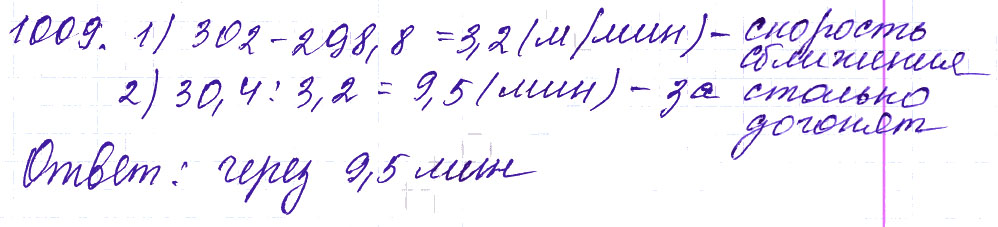 1009. 1) 302-298,8 = 3,2 (м/мин) - скорость
сближения
2) 30,4 : 3,2 = 9,5 (мин) - за столько
догонят
Ответ: через 9,5 мин